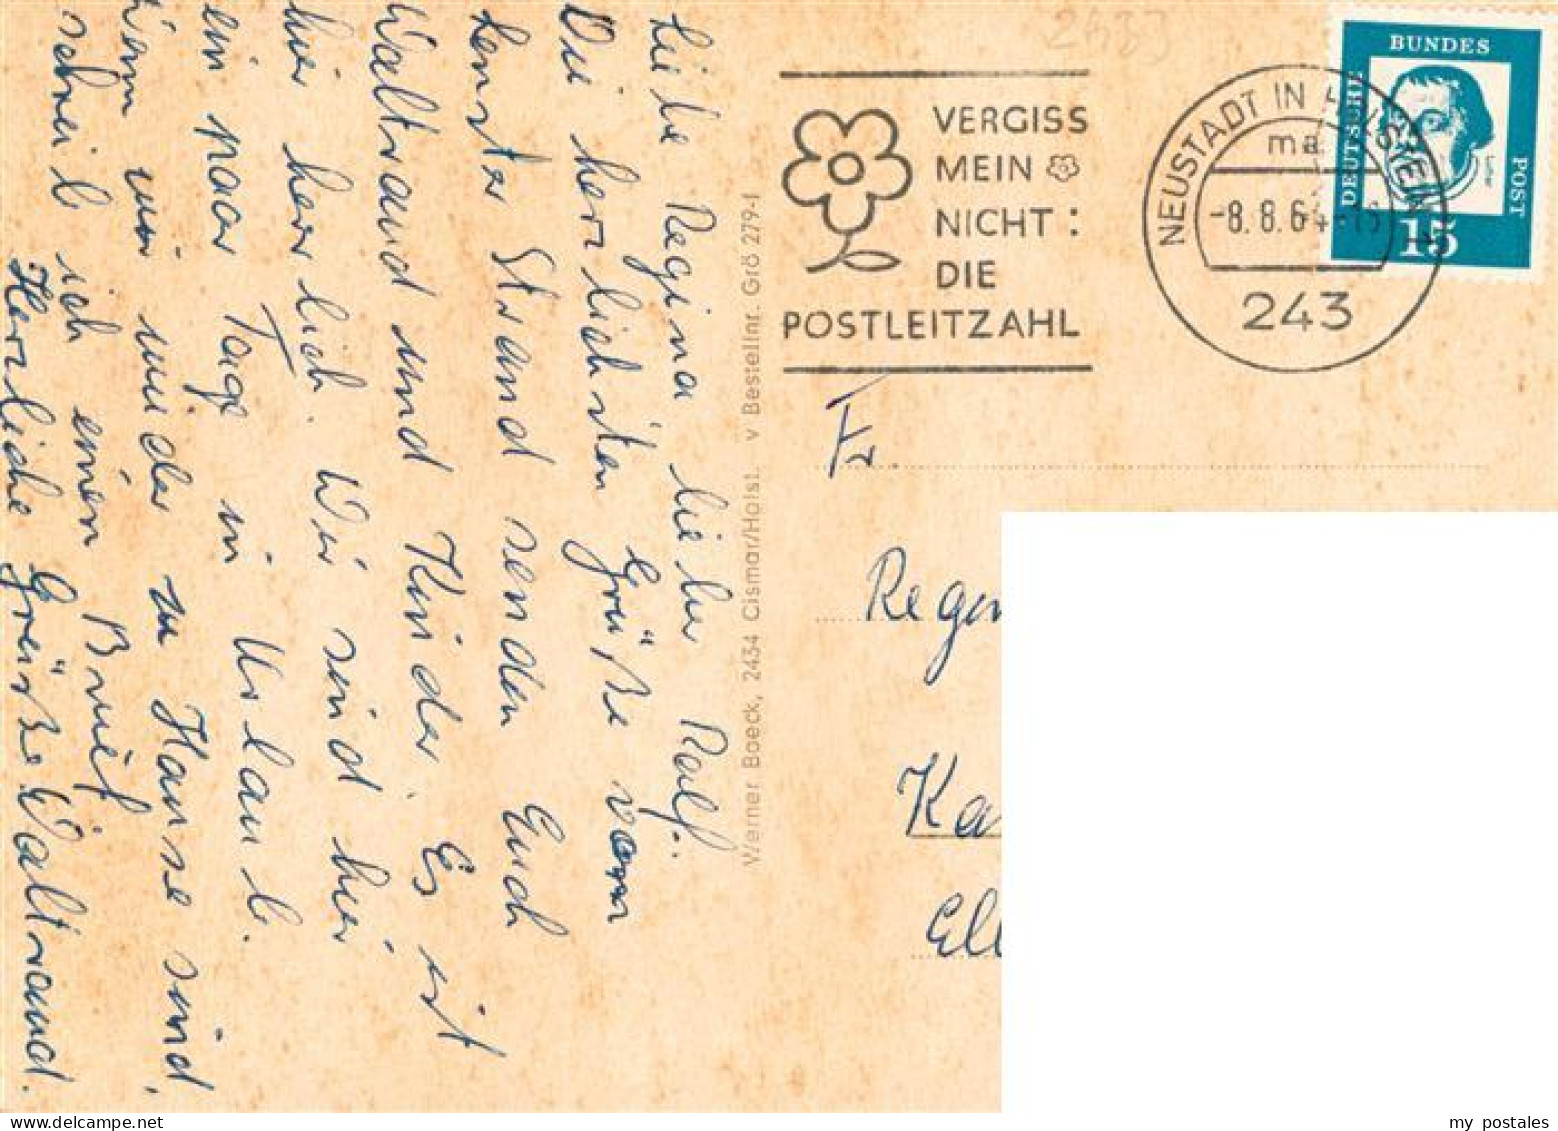 Liebe Regina lieber Ralf.
Die herrlichsten Grüße vom
Strand senden Euch
Waltraud und Kinder. Es ist
hier herrlich. Wir sind hier
ein paar Tage in Urlaub.
Wenn wir wieder zu Hause sind,
schreib ich einen Brief
Herzliche Grüße Waltraud.
Werner Boeck, 2434 Cismar/Holst. v Bestellnr. Grö 279-1
2433
VERGISS
MEIN
NICHT:
DIE
POSTLEITZAHL
NEUSTADT IN HOLSTEIN
ma
-8.8.64-
243
DEUTSCHE
BUNDES
POST
15
Fr.
Regin
Ka
Ell
my postales